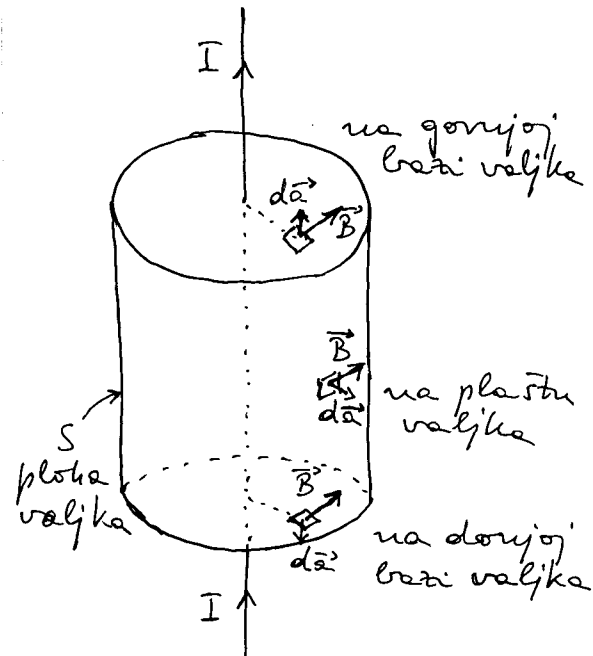 I
na gornjoj
bazi valjka
da⃗
B⃗
B⃗
da⃗
na plaštu
valjka
S
ploha
valjka
B⃗
da⃗
na donjoj
bazi valjka
I